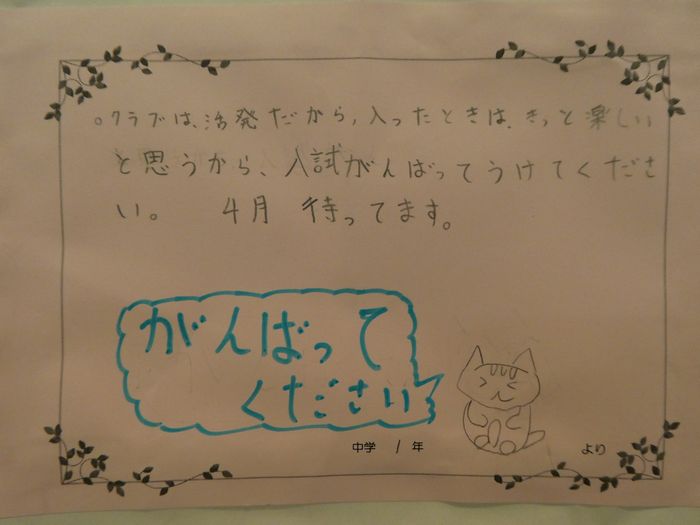 。クラブは、活発だから、入ったときは、きっと楽しい
と思うから、入試がんばってうけてくださ
い。 4月 待ってます。
がんばって
ください
中学 1 年 より